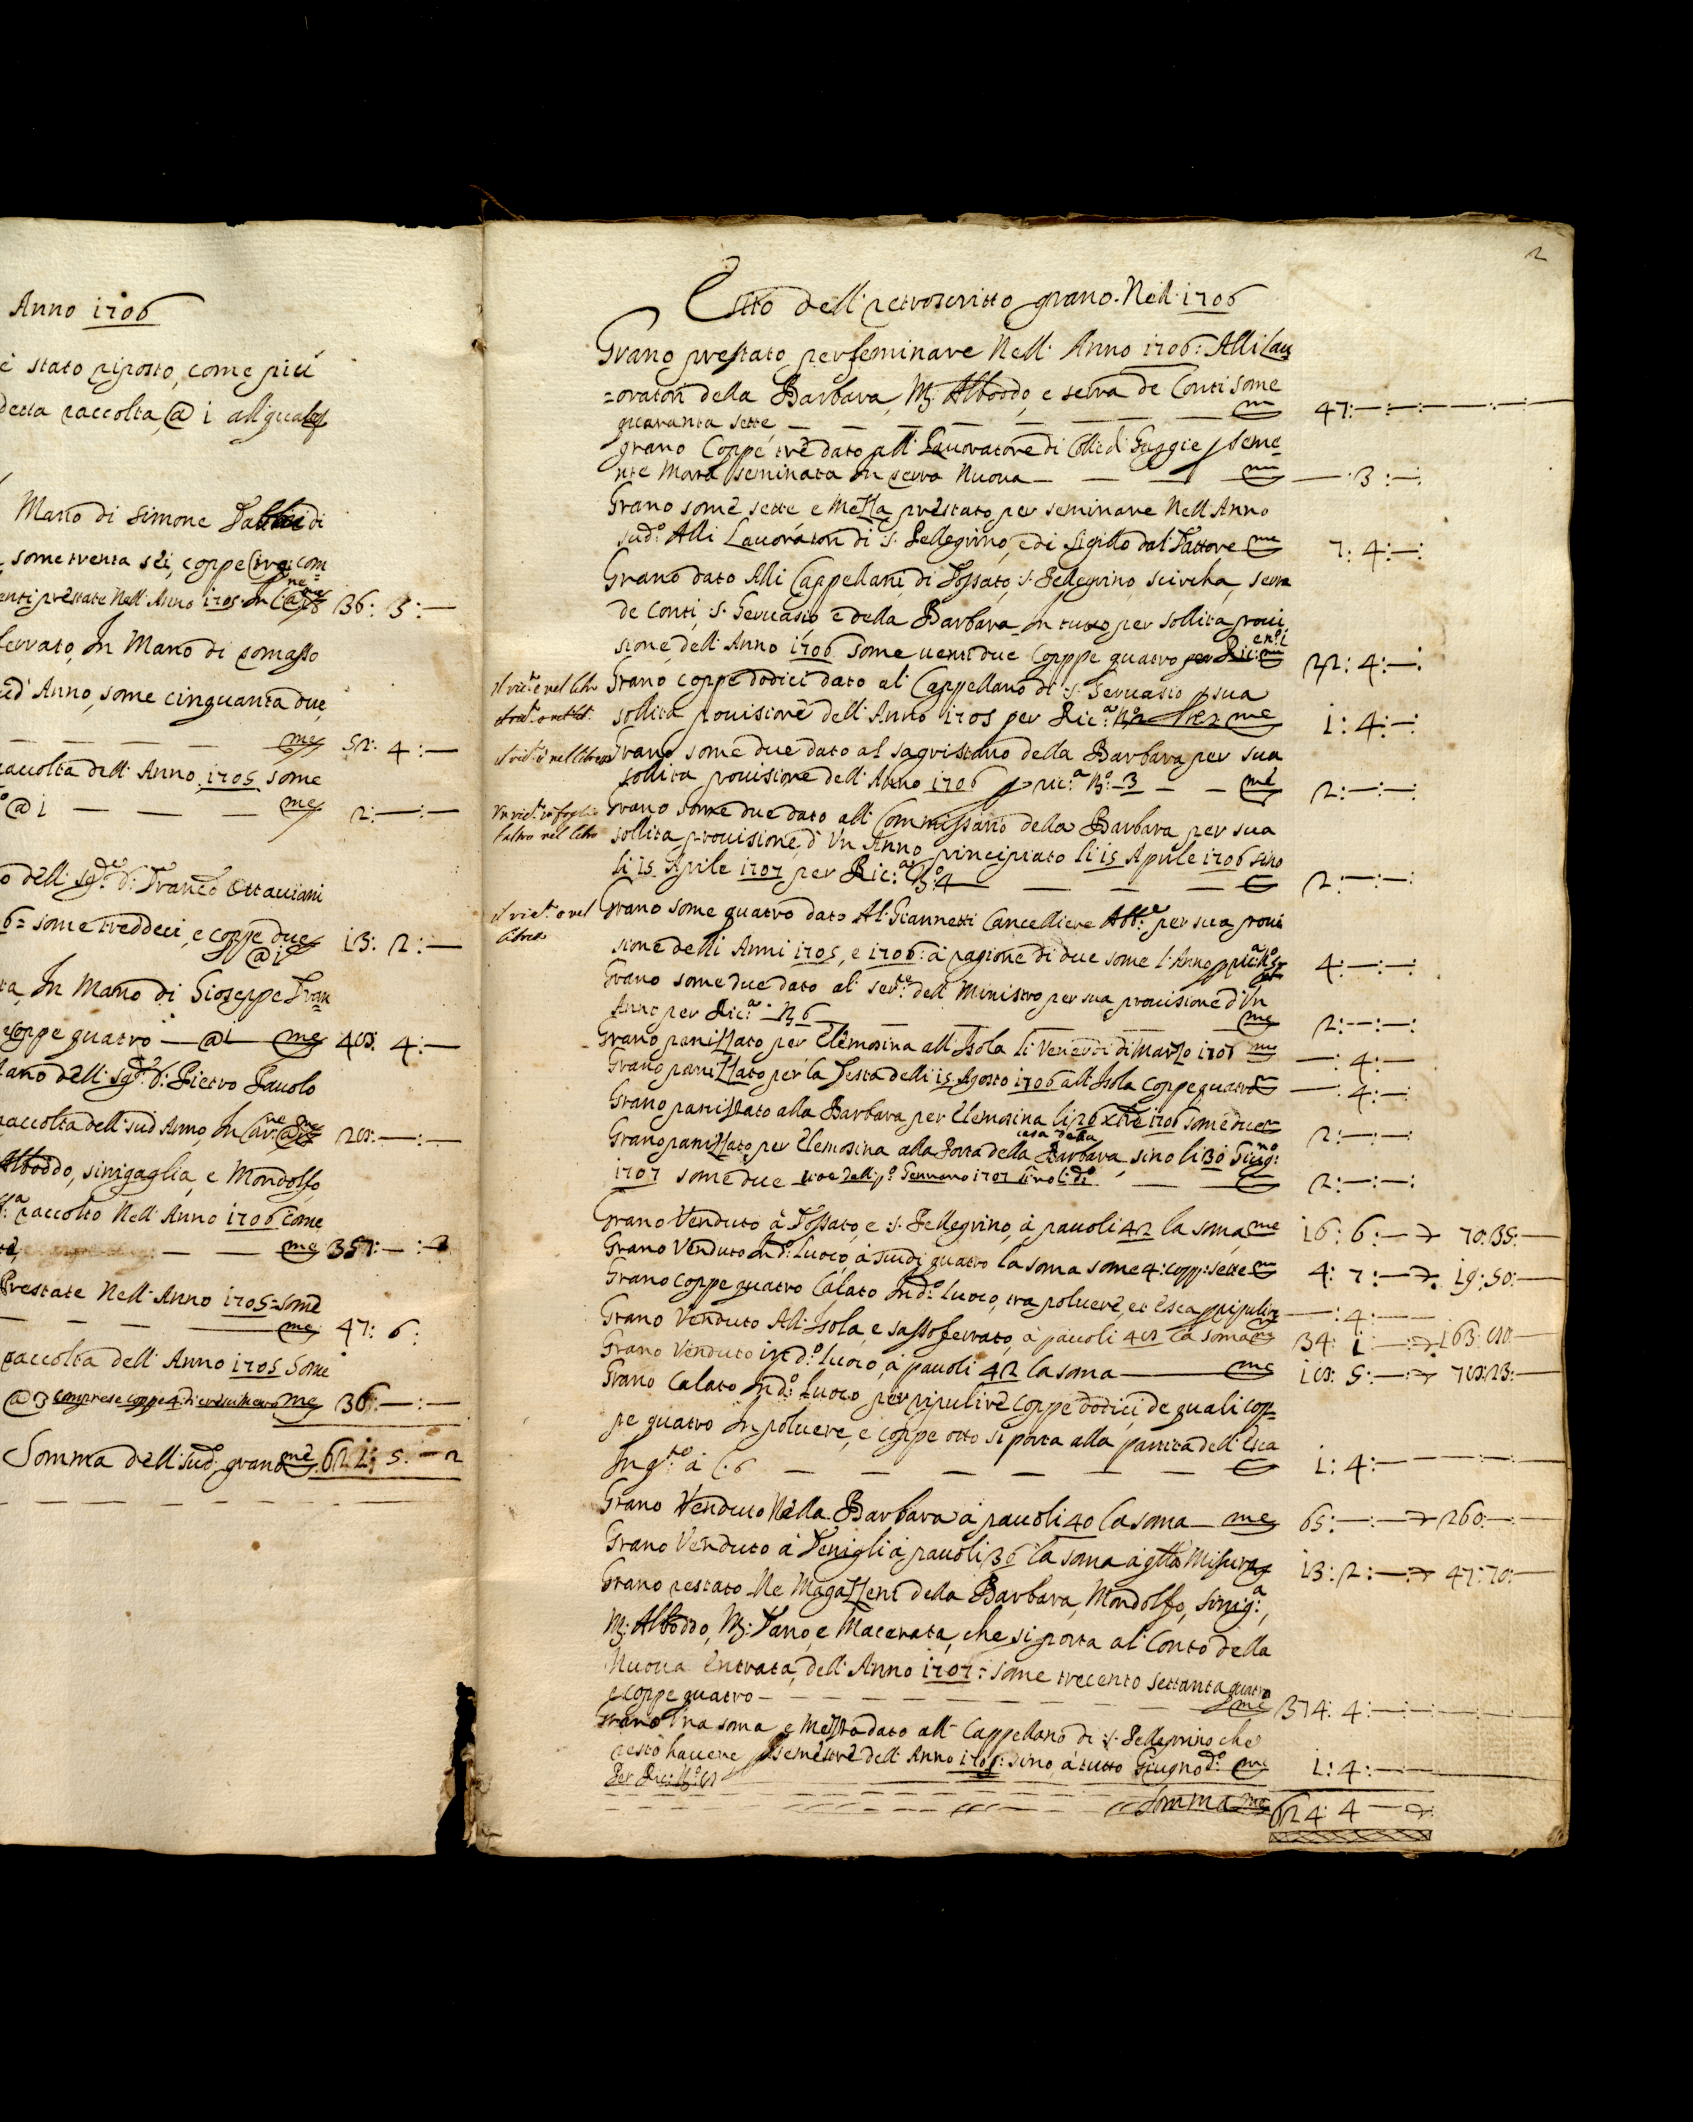 Anno 1706
è stato riposto, come più
detta raccolta, @ 1 all' qual
Mano di Simone di
some trenta sei, coppe tre: com
enti prestate Nell' Anno 1705 36: 3: —
serrato, In Mano di Tomasso
sud' Anno, some cinquanta due,
— — — — — me 52: 4: —
raccolta dell' Anno 1705 some
@ 1 — — — me 2: — : —
o dell' Sg.re d: Franc.o Ottaviani
6= some treddeci, e coppe due 13: 2: —
@ 1
ta, In Mano di Gioseppe Fran
coppe quatro — @ 1 — me 40: 4: —
Mano dell' Sg.re d: Pietro Pauolo
raccolta dell' sud Anno, In 20: — : —
Alboddo, sinigaglia, e Mondolfo,
raccolto Nell' Anno 1706 come
— — me 357: — : 3
Prestate Nell' Anno 1705: some
— — — me 47: 6:
raccolta dell' Anno 1705 some
@ 3 comprese coppe 4 di me 36: — : —
Somma dell' sud.o grano me 621: 5. — 2
2
Esito dell' retroscritto grano. Nell' 1706
Grano prestato per seminare Nell' Anno 1706: Alli Lau
=oratori della Barbara, M: Alboddo, e serra de Conti some
quaranta sette — — — — — — me 47: — : — : — : — : —
grano Coppe trè dato all' Lauoratore di Colli di Gaggie p seme=
nte Mora seminata in serra Nuova — — — — me — : 3: — :
Grano some sette e mezza prestato per seminare Nell' Anno
sud.o Alli Lauoratori di S: Pellegrino, e di Sigillo dal Fattore me 7: 4: — :
Grano dato Alli Cappellani di Fossato, S: Pellegrino, scircha, serra
de Conti, S: Geruasio e della Barbara in tutto per sollita proui
sione dell' Anno 1706 some uenti due Coppe quatro per Ric: 22: 4: — :
il ric.to è nel libro Grano coppe dodici dato al' Cappellano di S: Geruasio p sua
sollita prouisione dell' Anno 1705 per Ric.a me 1: 4: — :
il ric.to è nel libro Grano some due dato al sagristano della Barbara per sua
sollita prouisione dell' Anno 1706 p ric.a N.o 3 — — me 2: — : — :
Un ric.to in foglio Grano some due dato all' Commissario della Barbara per sua
l'altro nel libro sollita prouisione, d' Un Anno principiato li 15 Aprile 1706 sino
li 15 Aprile 1707 per Ric.a N.o 4 — — — 2: — : — :
il ric.to è nel Grano some quatro dato Al: Giannetti Cancelliere Abb.le per sua proui
libro sione delli Anni 1705, e 1706: a ragione di due some l' Anno p ric.a N.o 5 4: — : — :
Grano some due dato al' ser.re dell' Ministro per sua prouisione d'Un
Anno per Ric.a: N 6 — — — — — — me 2: — : — :
Grano panizzato per Elemosina all' Isola li Venerdi di Marzo 1707 me — : 4: —
Grano panizzato per la Festa delli 15 Agosto 1706 all' Isola Coppe quatro — : 4: — :
Grano panizzato alla Barbara, per Elemosina li 26 xbre 1706 some due 2: — : — :
casa della
Grano panizzato per Elemosina alla Porta della Barbara, sino li 30 Giug.no:
1707 some due cioè dalli p.o Gennaro 1707 sino li d.o — — 2: — : — :
Grano Venduto à Fossato, e S: Pellegrino, à pauoli 42 la soma me 16: 6: — 70: 35: —
Grano Venduto In d.o luoco, à scudi quatro la soma some 4: copp: sette me 4: 7: — 19: 50: —
Grano coppe quatro Calato In d.o luoco, tra poluere, et esca p ripulire — : 4: — —
Grano Venduto All' Isola, e sassoferrato, à pauoli la soma 34: 1 — 163:
Grano Venduto in d.o luoco, à pauoli 42 la soma — me 5: —
Grano Calato In d.o luoco per ripulire coppe dodici de quali cop=
pe quatro In poluere, e coppe otto si porta alla partita dell' Esca
In q.to à C. 6 — — — — — — — 1: 4: — : — — — —
Grano Venduto Nella Barbara à pauoli 40 la soma — me 65: — : — 260: — :
Grano Venduto à Feniglia pauoli 36 la soma à q.lla Misura 13: 2: — 47: 70: —
Grano restato Ne Magazzeni della Barbara, Mondolfo, Sinig.a,
M: Alboddo, M: Fano, e Macerata, che si porta al' Conto della
Nuoua Entrata, dell' Anno 1707: some trecento settanta quatro
e coppe quatro — — — — — — — — me 374: 4: — : — : —
Grano Una soma e Mezza dato all' Cappellano di S: Pellegrino che
restò hauere p semestre dell' Anno 1705: sino à tutto Giugno d.o me 1: 4: — : —
Per Ric: N.o
Somma me 624: 4 —